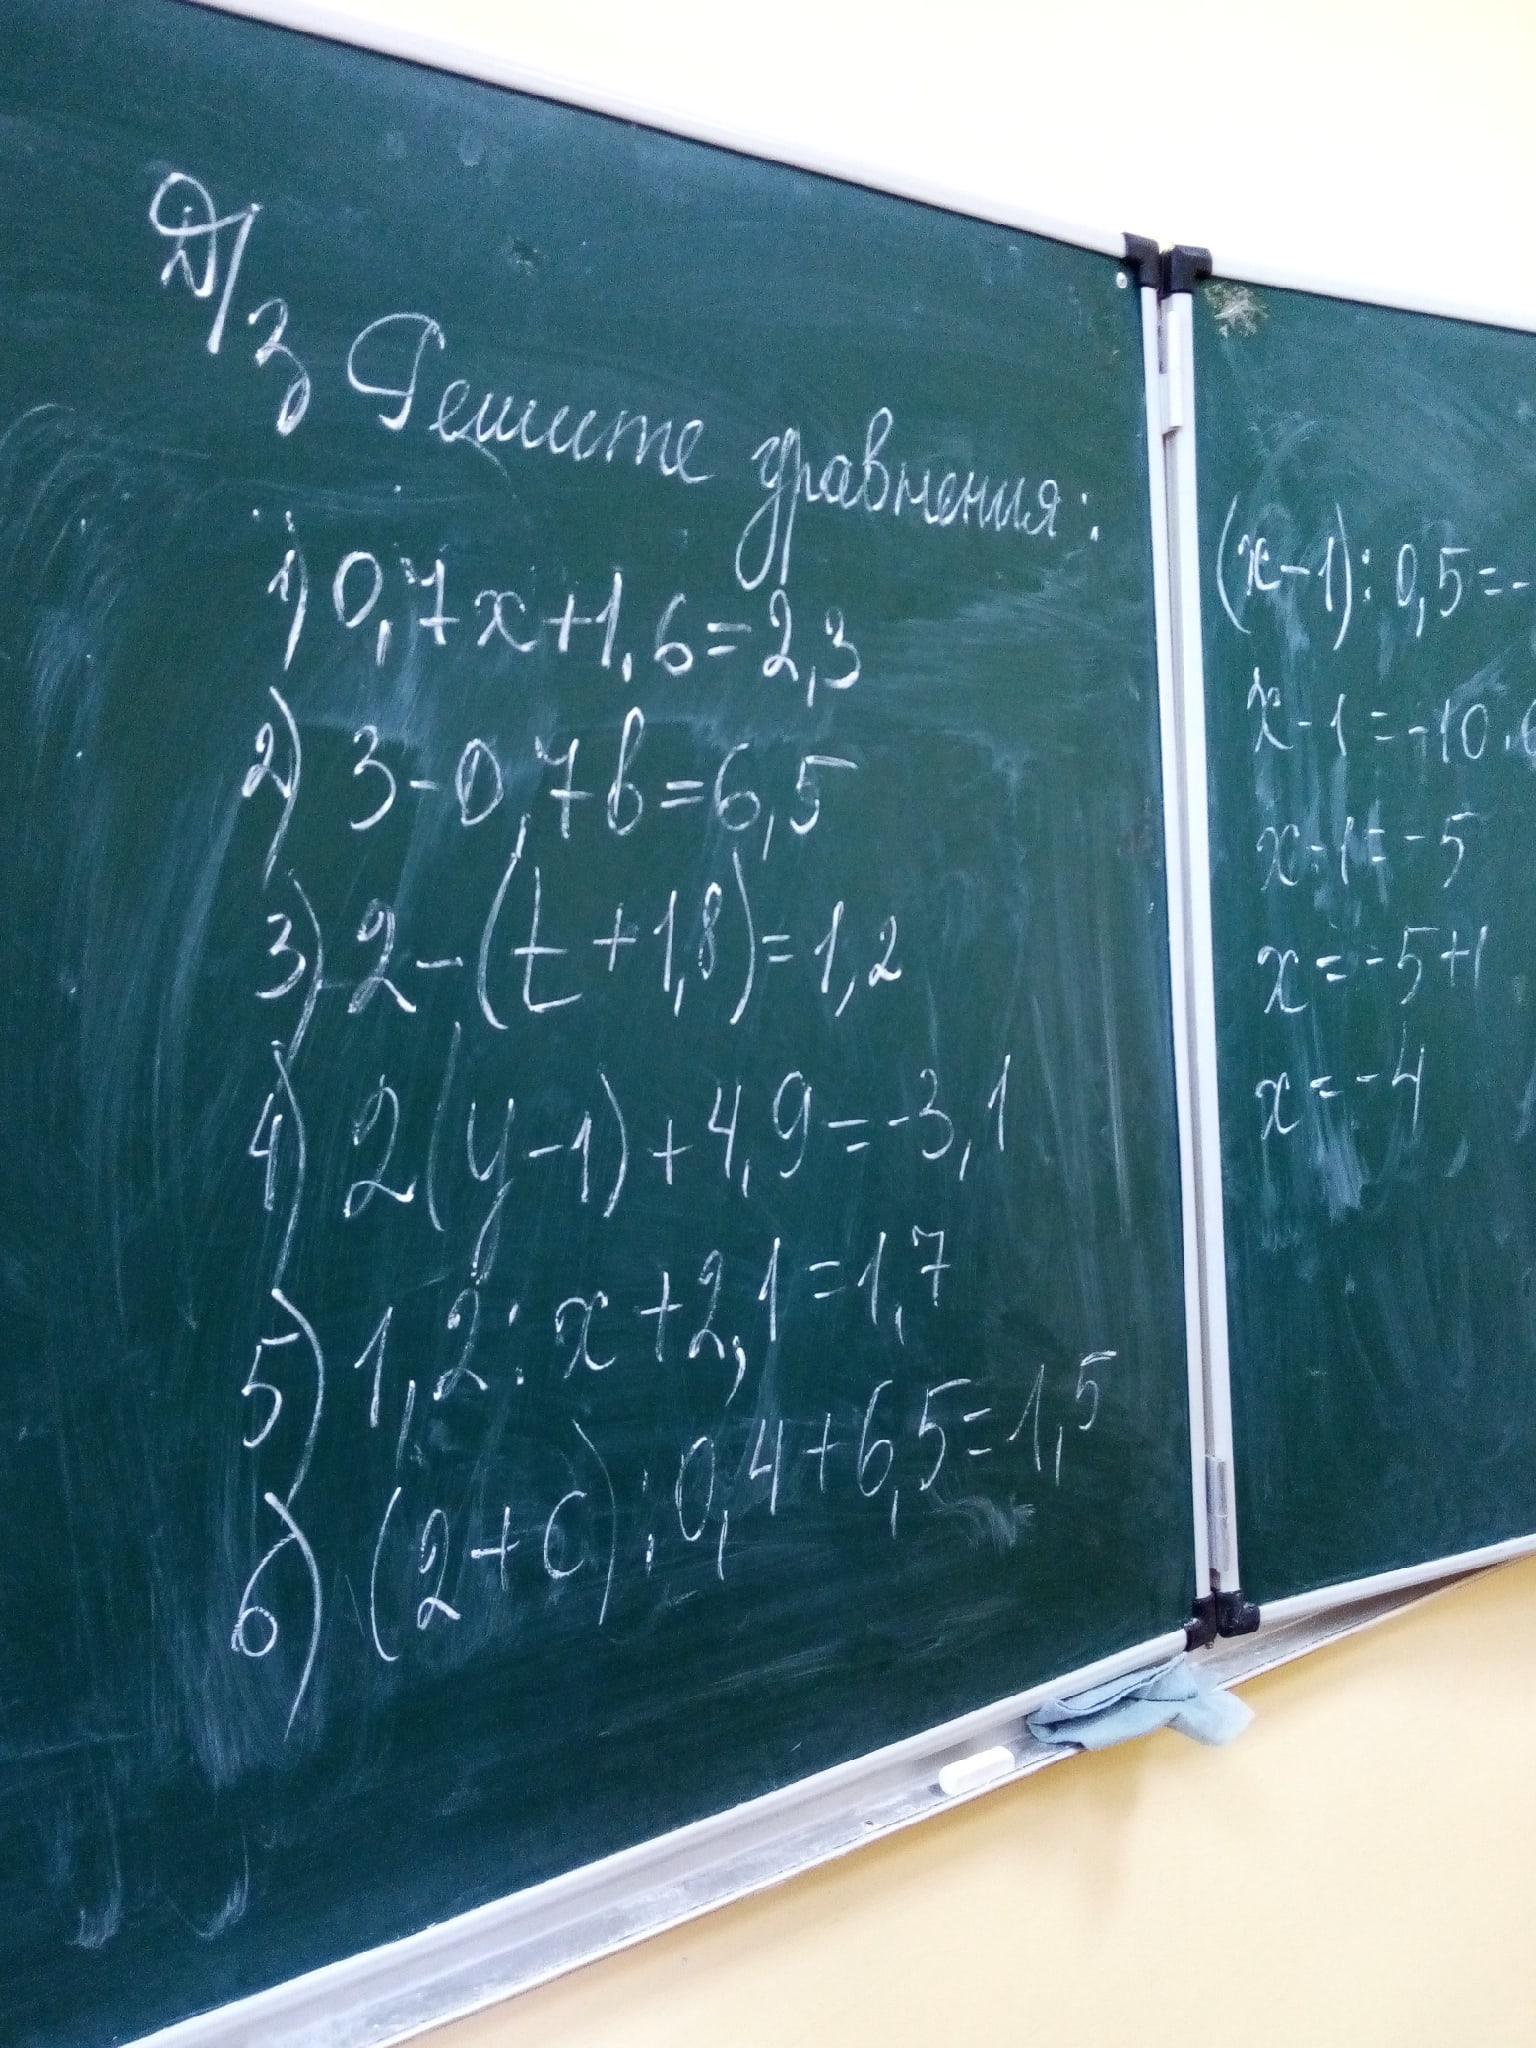 Д/з Решите уравнения:
1) 0,7x+1,6=2,3
2) 3-0,7b=6,5
3) 2-(t+1,8)=1,2
4) 2(y-1)+4,9=-3,1
5) 1,2:x+2,1=1,7
6) (2+c):0,4+6,5=1,5
(x-1):0,5=-
x-1=-10·
x-1=-5
x=-5+1
x=-4